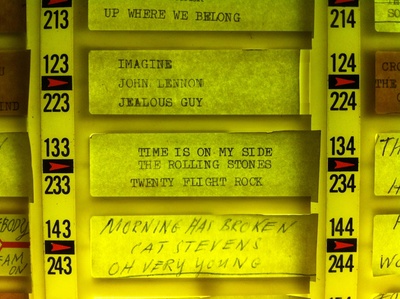 213
UP WHERE WE BELONG
214
123
IMAGINE
124
JOHN LENNON
223
JEALOUS GUY
224
133
TIME IS ON MY SIDE
134
THE ROLLING STONES
233
TWENTY FLIGHT ROCK
234
143
MORNING HAS BROKEN
144
CAT STEVENS
243
OH VERY YOUNG
244